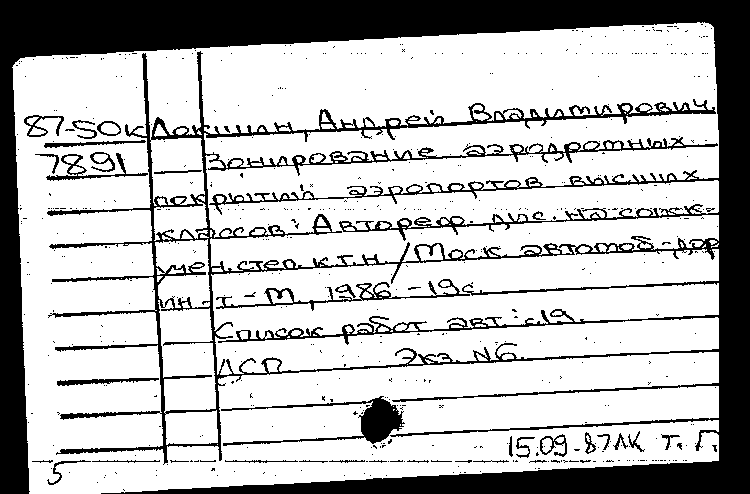 87-50к Локшин, Андрей Владимирович.
7891 Зонирование аэродромных
покрытий аэропортов высших
классов: Автореф. дис. на соиск.
учен. степ. к.т.н. / Моск. автомоб.-дор
ин-т. - М., 1986. - 19с.
Список работ авт.: с.19.
ДСП Экз. N6.
15.09-87ЛК Т. П.
5